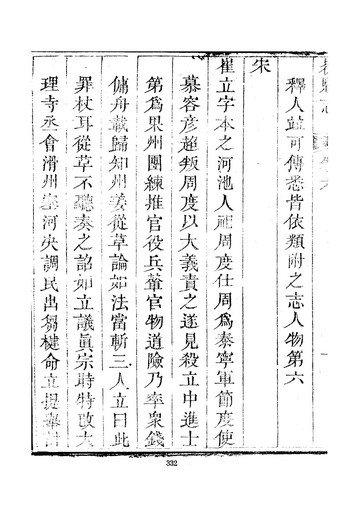 釋人並可傳悉皆依類附之志人物第六
宋
崔立字本之河池人祖周度仕周爲泰寧軍節度使
慕容彥超叛周度以大義責之遂見殺立中進士
第爲果州團練推官役兵輦官物道險乃率衆錢
傭舟載歸知州姜從革論如法當斬三人立曰此
罪杖耳從革不聽奏之詔如立議眞宗時特改大
理寺丞會滑州塞河決調民出芻楗命立提舉
332